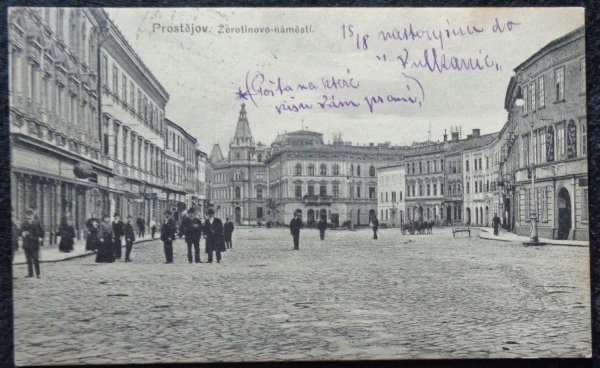 Prostějov. Žerotinovo-náměstí.
15/8 nastoupím do
„Vulkanie„
*(Pošta na které
píšu Vám psaní)